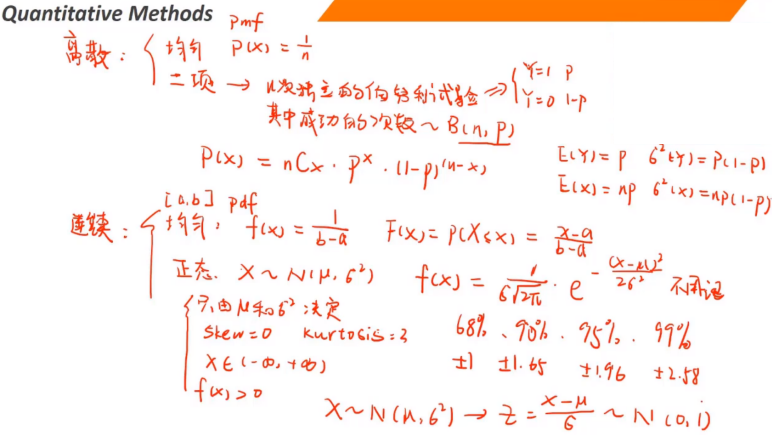 Quantitative Methods
pmf
离散： 均匀 P(x) = 1/n
二项 → n次独立的伯努利试验 => Y=1 p
Y=0 1-p
其中成功的次数 ~ B(n, p)
P(x) = nCx · p^x · (1-p)^(n-x)
E(Y) = p σ²(Y) = p(1-p)
E(x) = np σ²(x) = np(1-p)
[a,b] pdf
连续： 均匀： f(x) = 1/(b-a) F(x) = P(X≤x) = (x-a)/(b-a)
正态. X ~ N(μ, σ²) f(x) = 1/(σ√2π) · e^-(x-μ)²/2σ² 不用记
只由μ和σ²决定
skew = 0 kurtosis = 3
68%、90%、95%、99%
x∈(-∞, +∞)
±1 ±1.65 ±1.96 ±2.58
f(x) > 0
X ~ N(μ, σ²) → Z = (x-μ)/σ ~ N(0, 1)